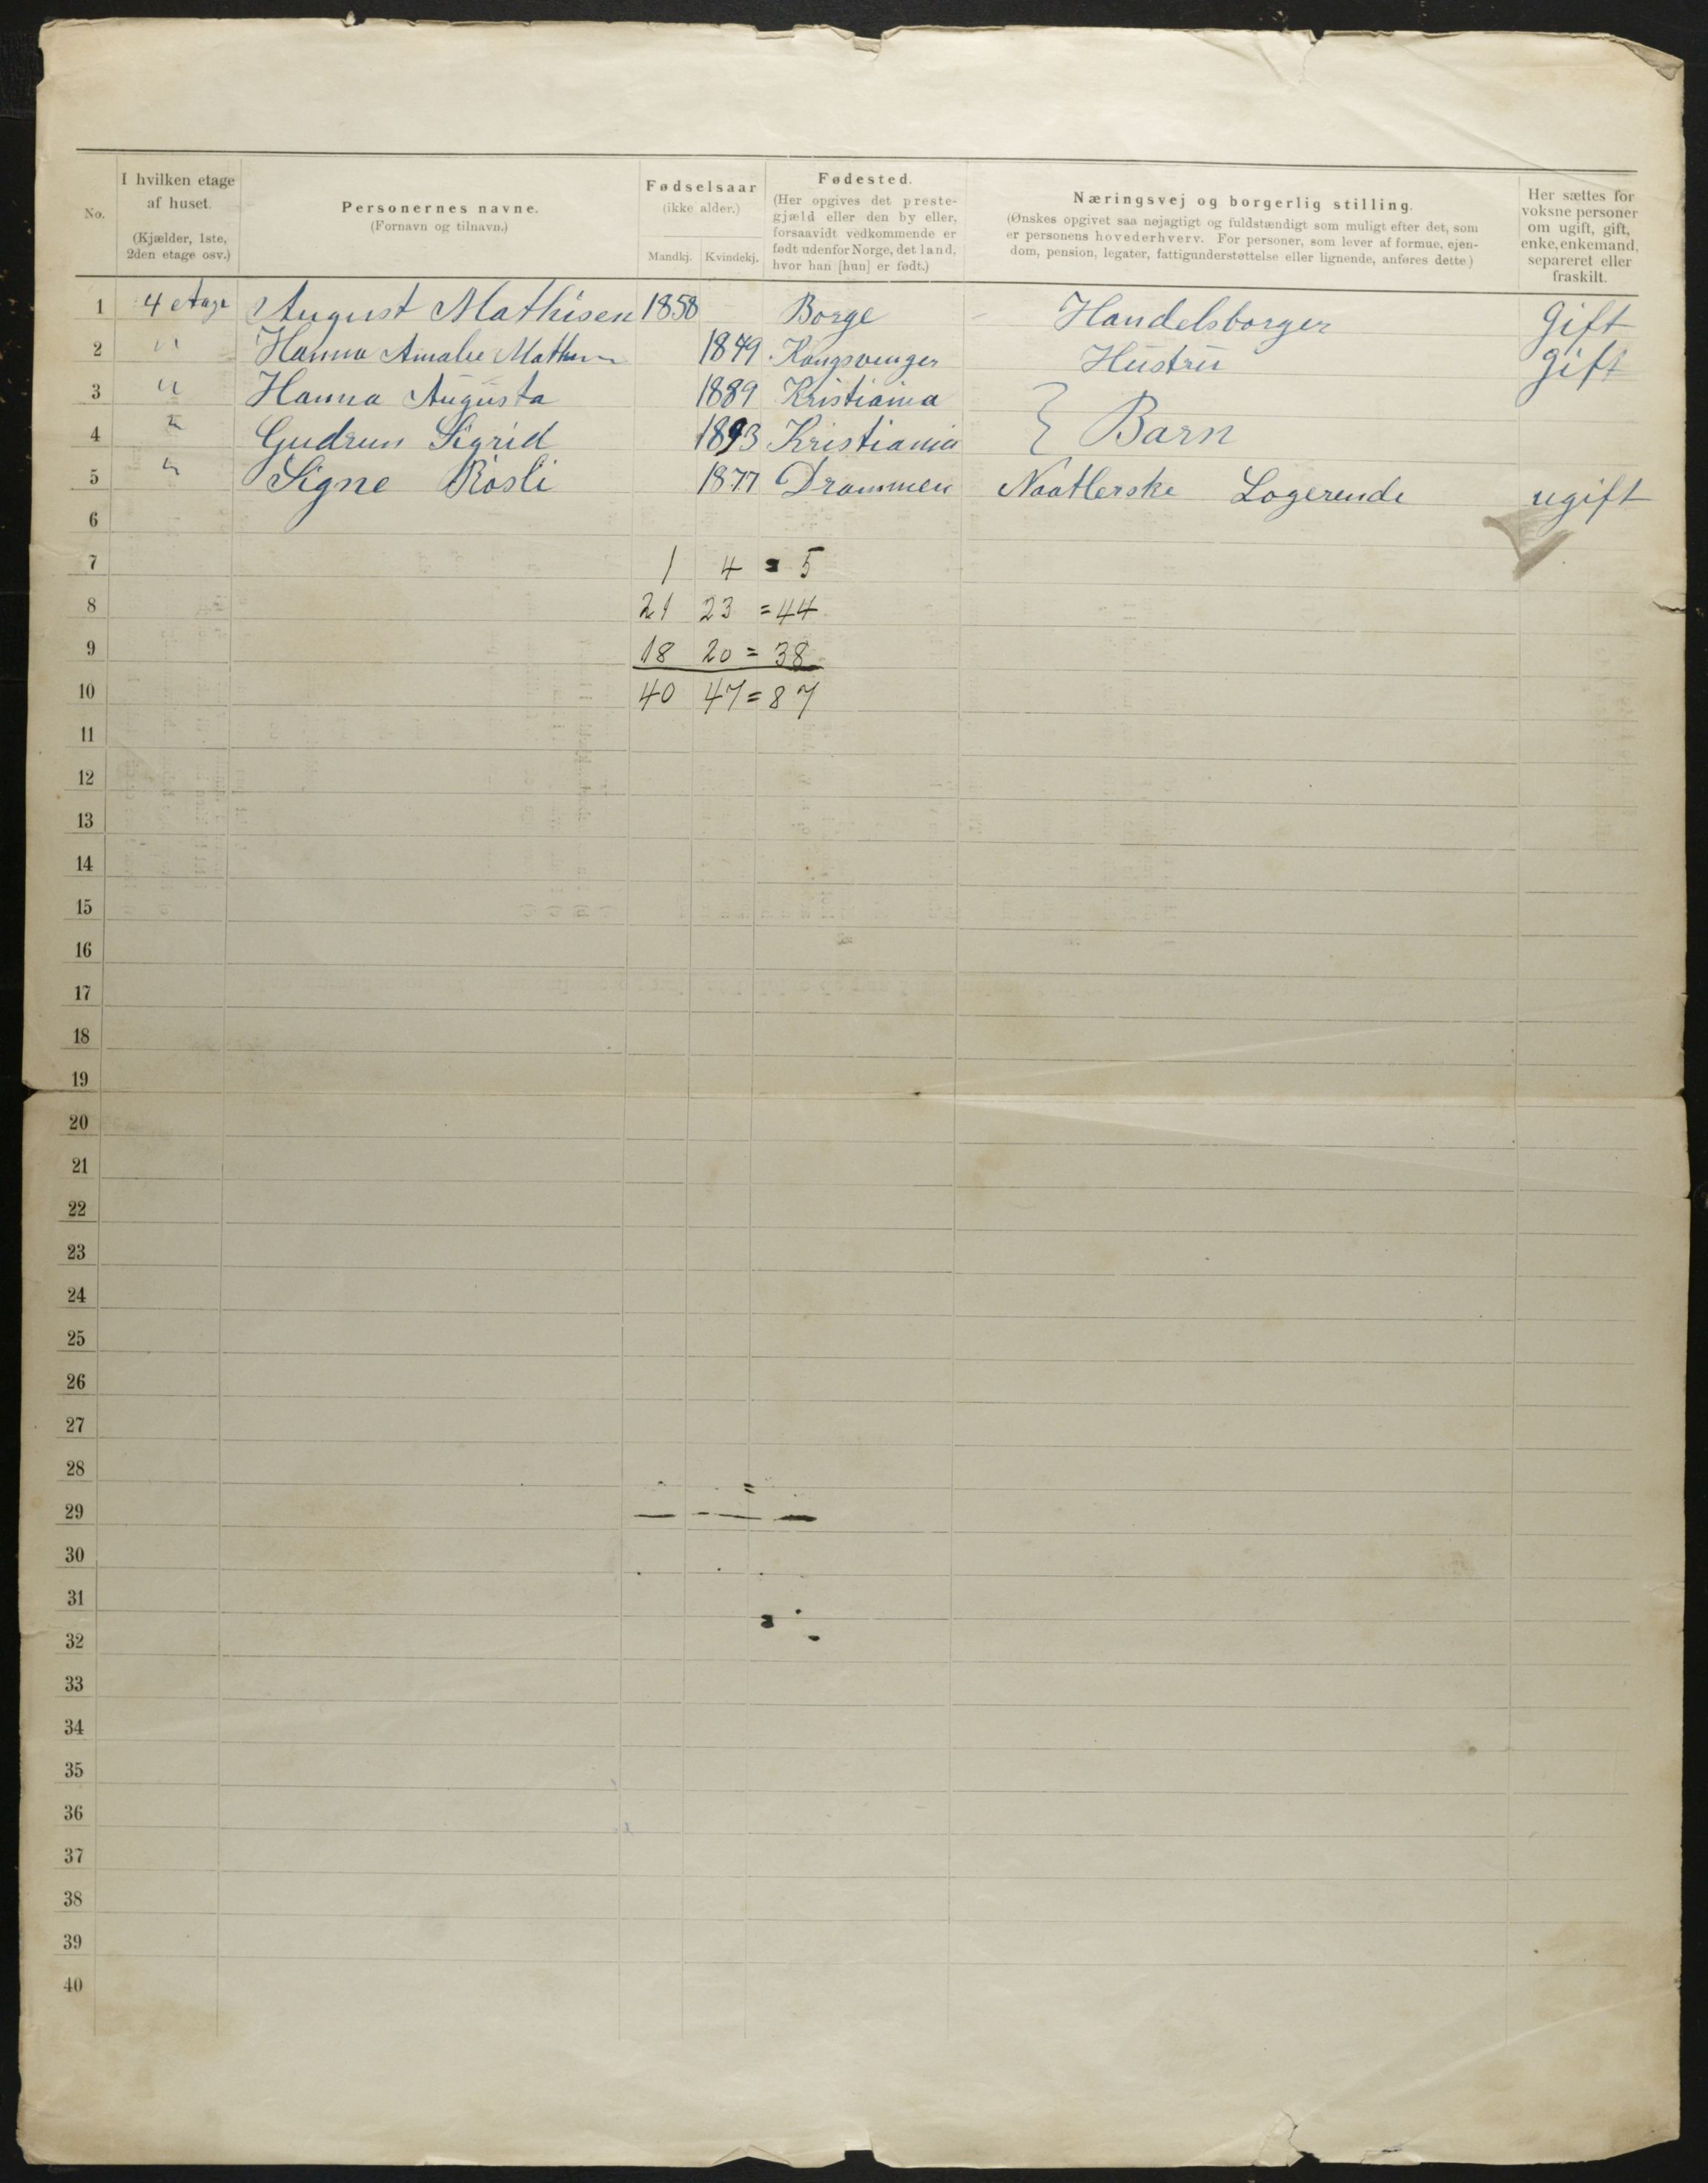 No.
I hvilken etage
af huset.
(Kjælder, 1ste,
2den etage osv.)
Personernes navne.
(Fornavn og tilnavn.)
Fødselsaar
(ikke alder.)
Mandkj. Kvindekj.
Fødested.
(Her opgives det preste-
gjæld eller den by eller,
forsaavidt vedkommende er
født udenfor Norge, det land,
hvor han [hun] er født.)
Næringsvej og borgerlig stilling.
(Ønskes opgivet saa nøjagtigt og fuldstændigt som muligt efter det, som
er personens hovederhverv. For personer, som lever af formue, ejen-
dom, pension, legater, fattigunderstøttelse eller lignende, anføres dette)
Her sættes for
voksne personer
om ugift, gift,
enke, enkemand,
separeret eller
fraskilt.
1 4 etage August Mathisen 1858 Borge Handelsborger Gift
2 " Hanna Amalie 1849 Kongsvenger Hustru Gift
3 " Hanna Augusta 1889 Kristiania } Barn
4 " Gudrun Sigrid 1893 Kristiania
5 " Signe Rosli 1877 Drammen Logerende ugift
6
7 1 4 = 5
8 21 23 = 44
9 18 20 = 38
10 40 47 = 87
11
12
13
14
15
16
17
18
19
20
21
22
23
24
25
26
27
28
29
30
31
32
33
34
35
36
37
38
39
40